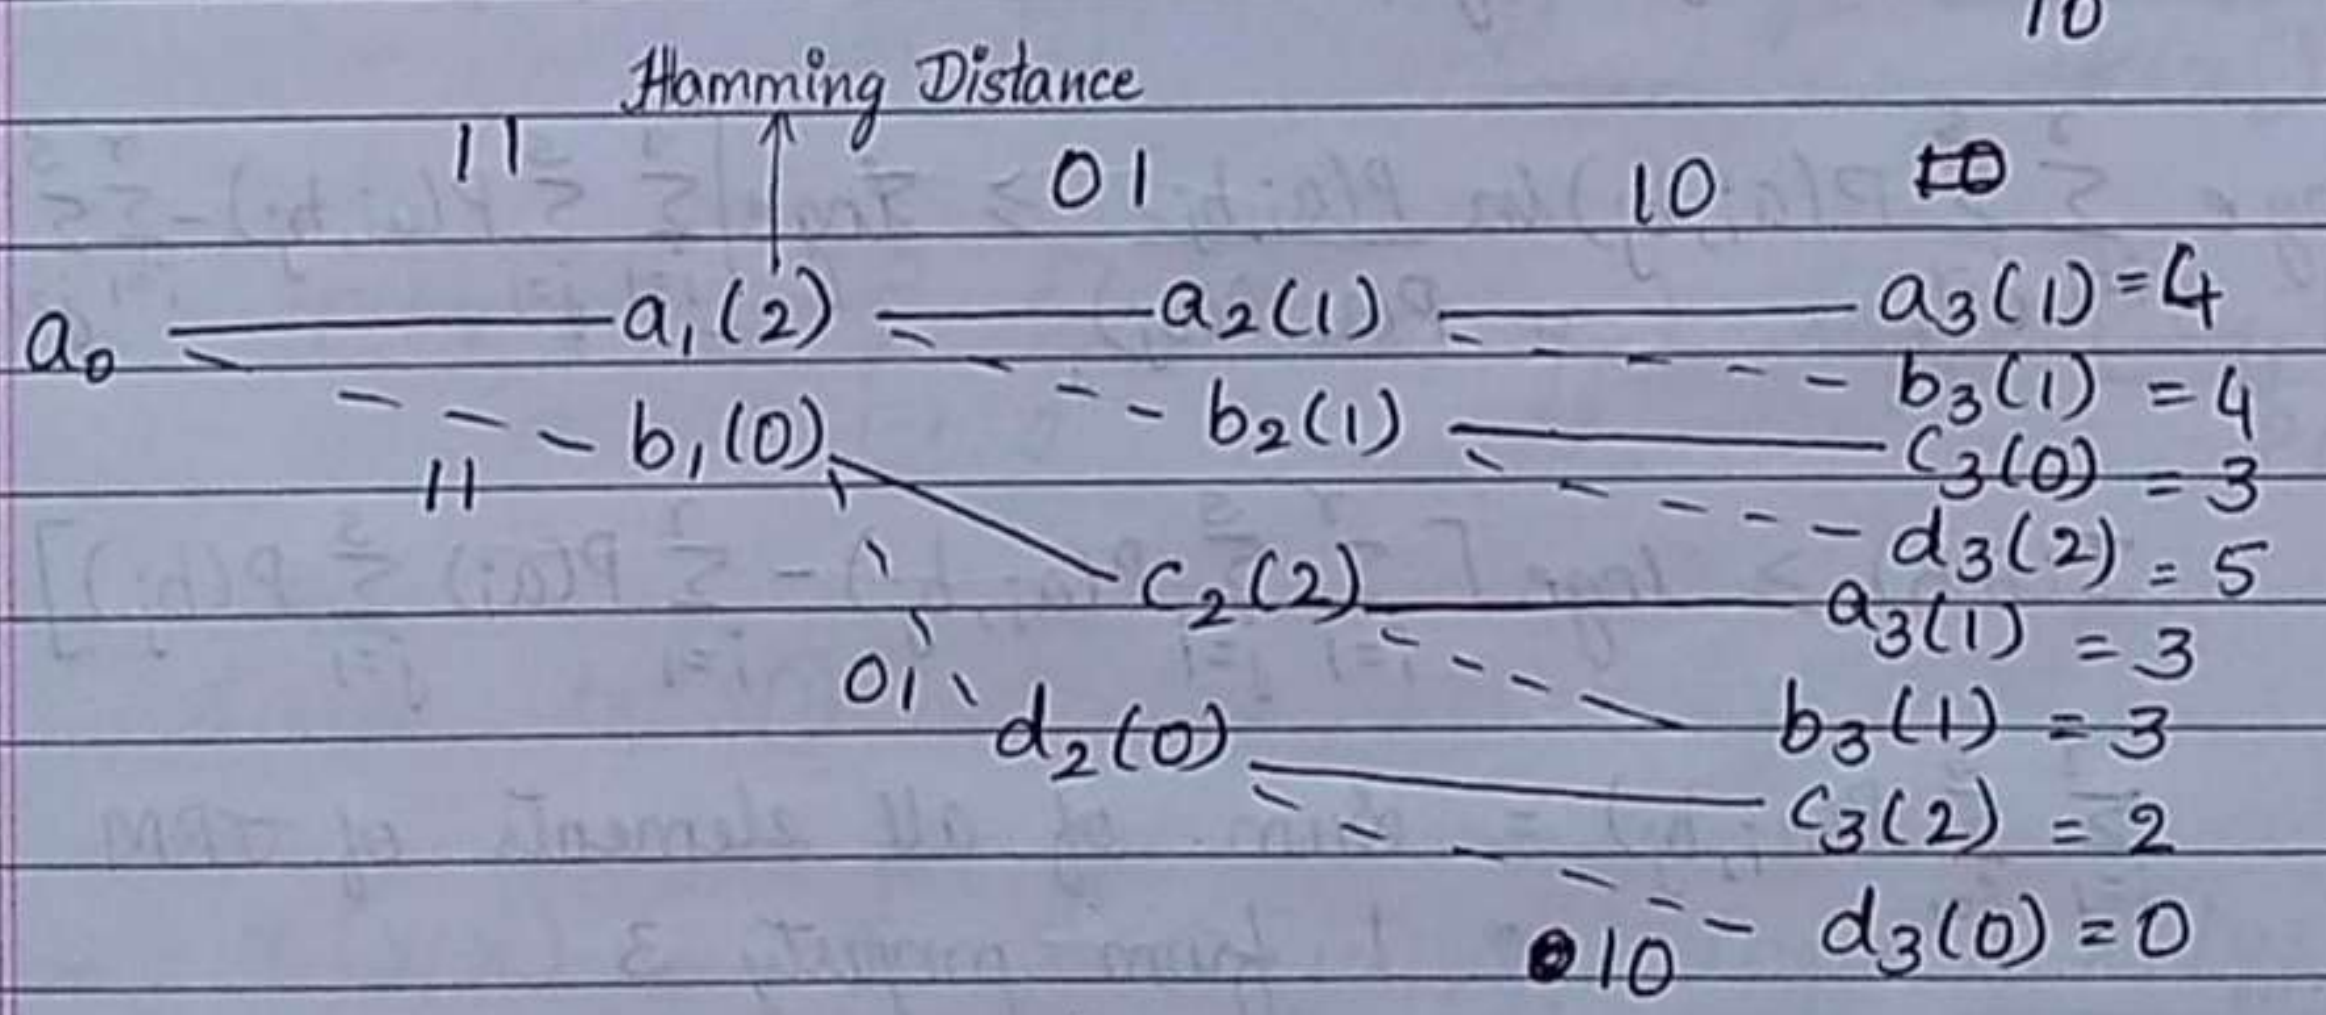 10
Hamming Distance
11 01 10
a₀ a₁(2) a₂(1) a₃(1) = 4
b₃(1) = 4
b₁(0) b₂(1) c₃(0) = 3
11
d₃(2) = 5
c₂(2) a₃(1) = 3
01 d₂(0) b₃(1) = 3
c₃(2) = 2
10 d₃(0) = 0